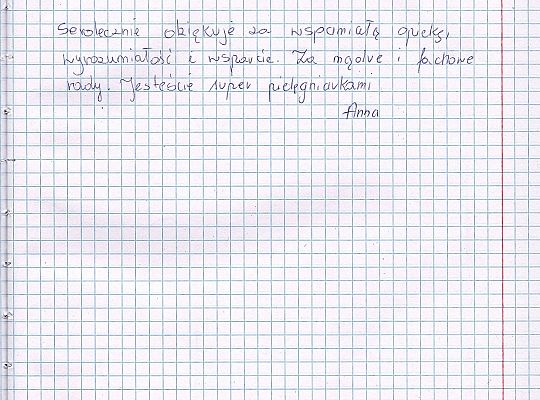 Serdecznie dziękuje za wspaniałą opiekę,
wyrozumiałość i wsparcie. Za mądre i fachowe
rady. Jesteście super pielęgniarkami
Anna